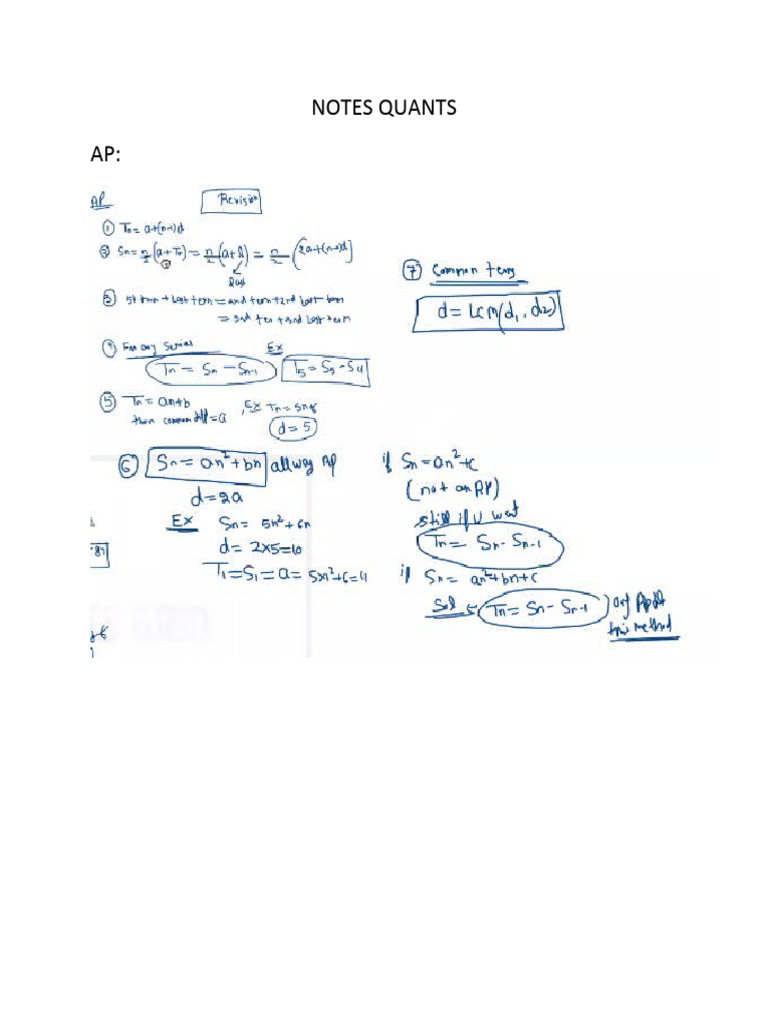 NOTES QUANTS
AP:
AP Revision
① Tn = a+(n-1)d
② Sn = n/2 (a+Tn) = n/2 (a+l) = n/2 (2a+(n-1)d]
last
③ 1st term + last term = 2nd term + 2nd last term
= 3rd ter + 3rd last term
④ For any series Ex
Tn = Sn - Sn-1 T5 = S5 - S4
⑤ Tn = an+b , Ex Tn = 5n+
then common = a d = 5
⑦ Common term
d = LCM(d1, d2)
⑥ Sn = an² + bn allway AP
d = 2a
Ex Sn = 5n² + 6n
d = 2×5 = 10
T1 = S1 = a = 5×1² + 6 = 11
if Sn = an² + c
(not an AP)
still if U want
Tn = Sn - Sn-1
if Sn = an² + bn + c
Sol Tn = Sn - Sn-1
this method